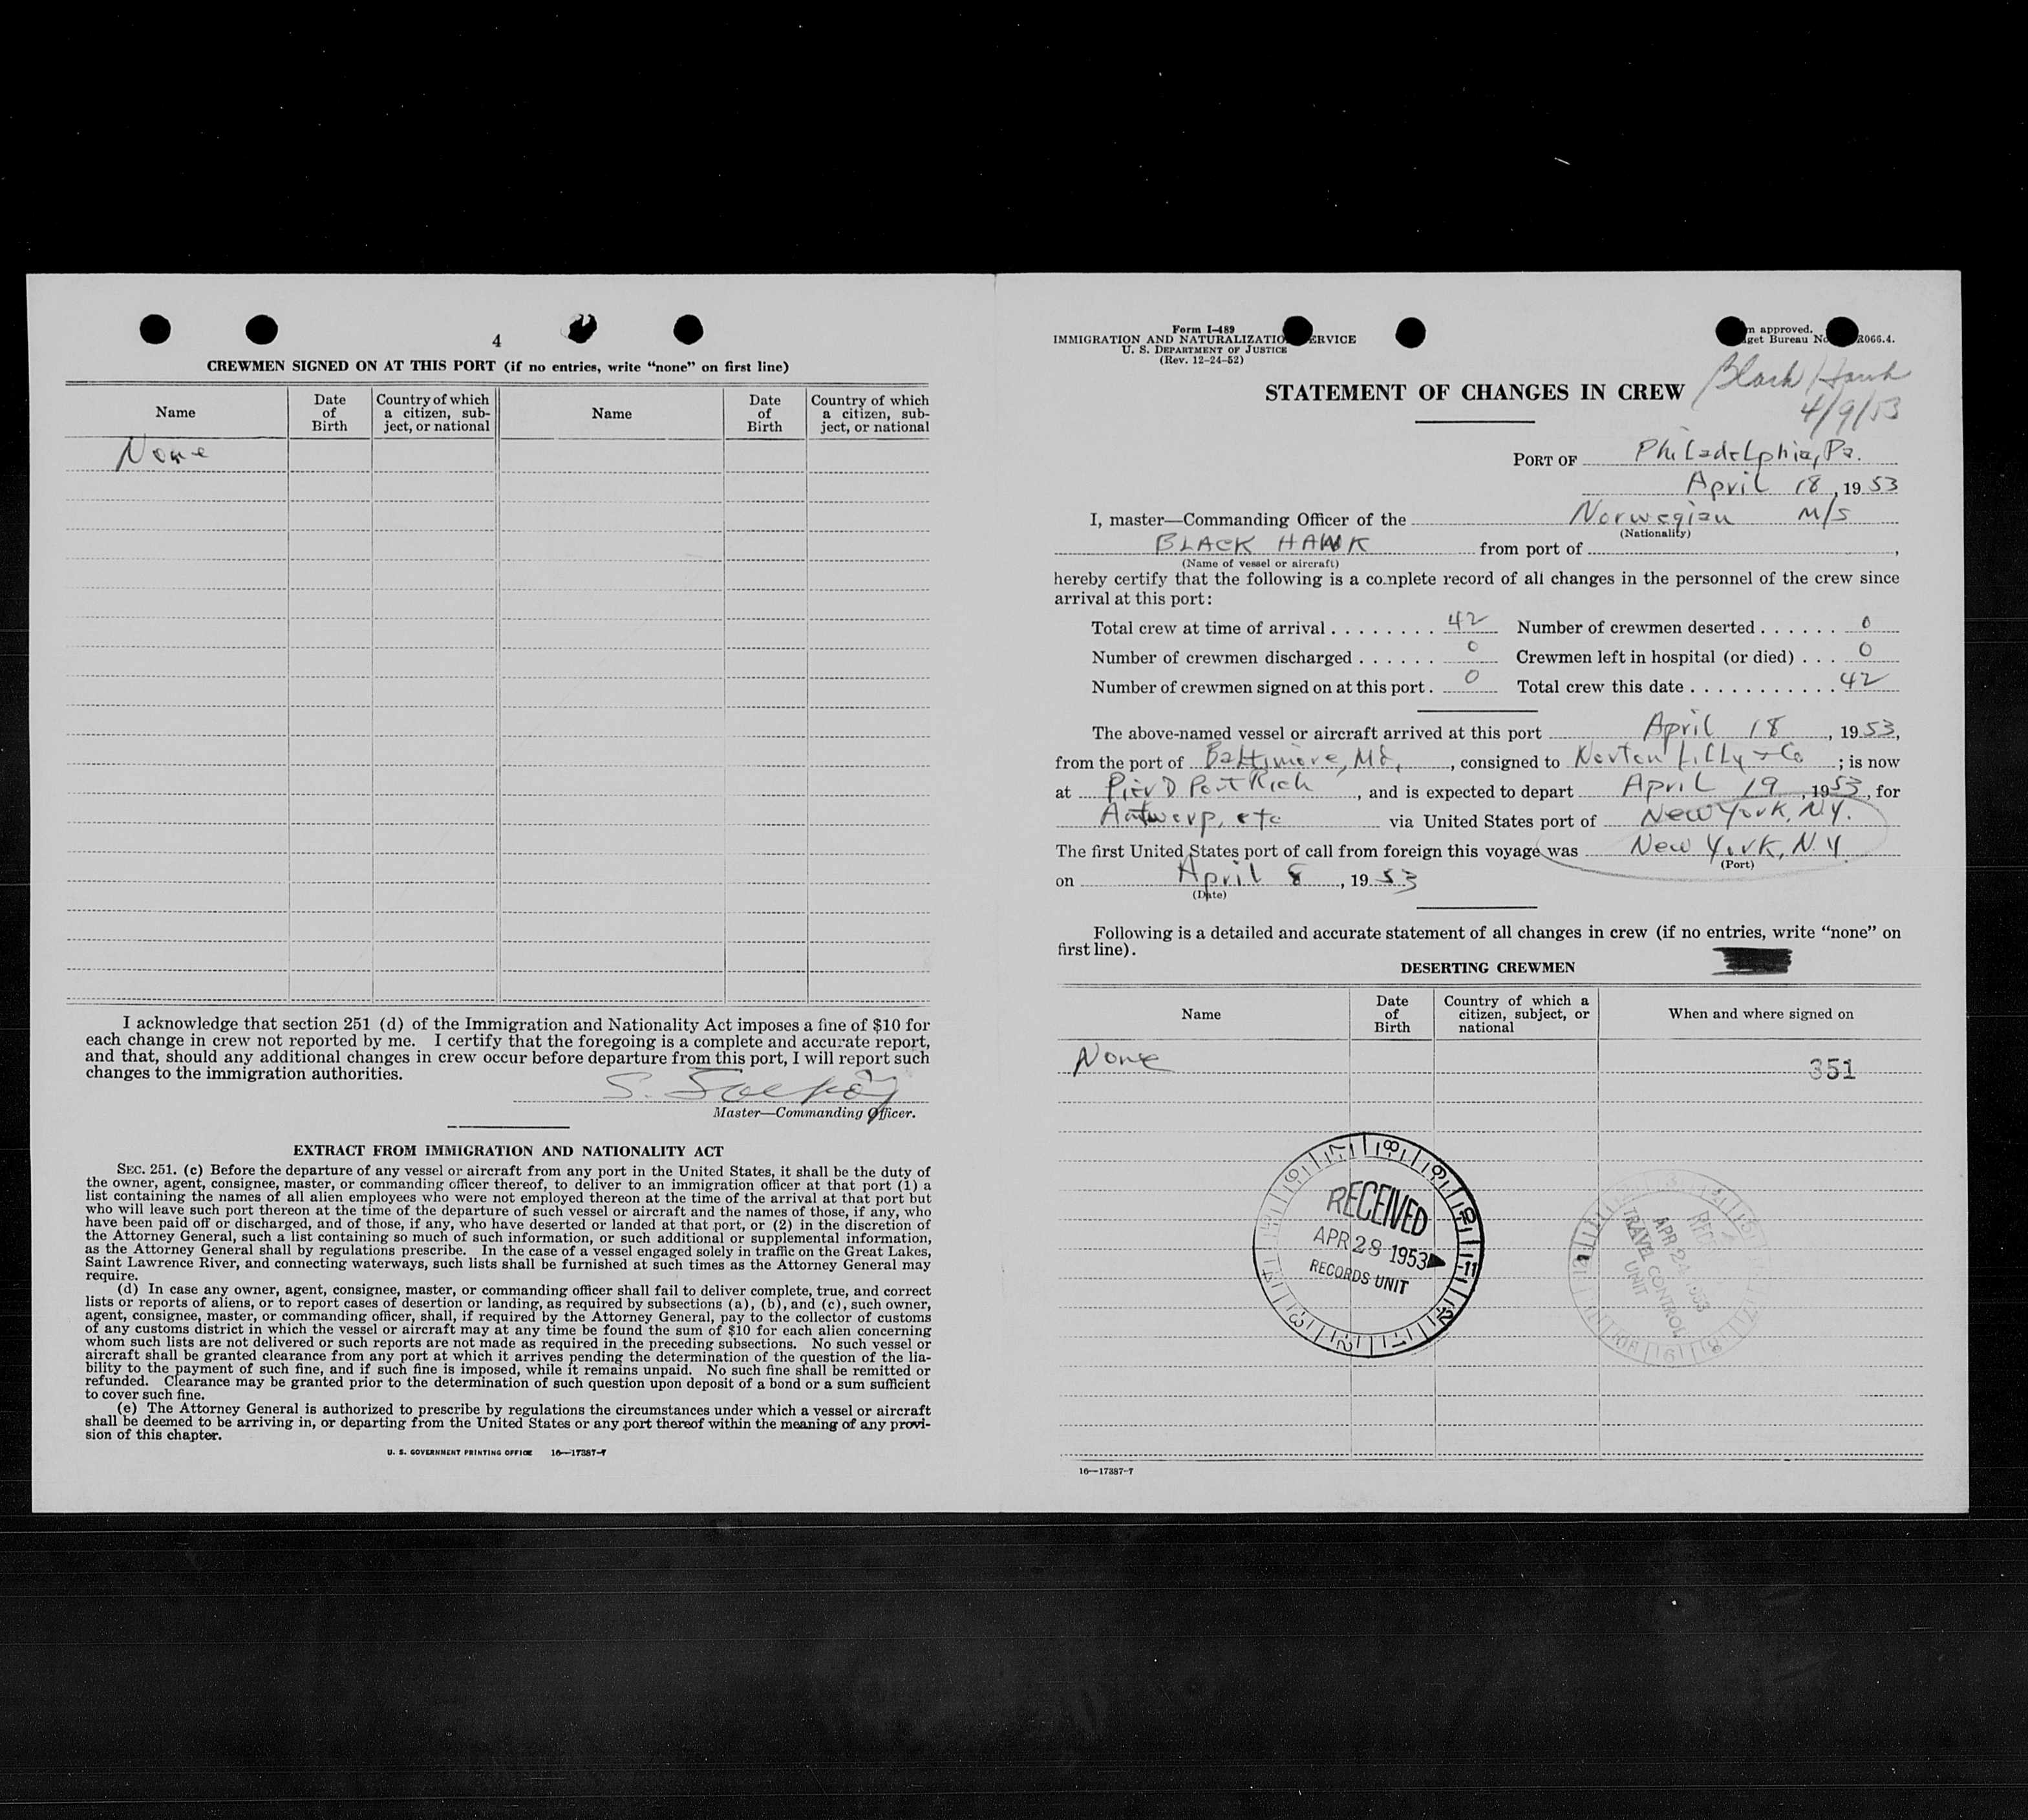 4
CREWMEN SIGNED ON AT THIS PORT (if no entries, write “none” on first line)
Name
Date of Birth
Country of which a citizen, subject, or national
Name
Date of Birth
Country of which a citizen, subject, or national
None
I acknowledge that section 251 (d) of the Immigration and Nationality Act imposes a fine of $10 for
each change in crew not reported by me. I certify that the foregoing is a complete and accurate report,
and that, should any additional changes in crew occur before departure from this port, I will report such
changes to the immigration authorities.
S.
Master—Commanding Officer.
EXTRACT FROM IMMIGRATION AND NATIONALITY ACT
SEC. 251. (c) Before the departure of any vessel or aircraft from any port in the United States, it shall be the duty of
the owner, agent, consignee, master, or commanding officer thereof, to deliver to an immigration officer at that port (1) a
list containing the names of all alien employees who were not employed thereon at the time of the arrival at that port but
who will leave such port thereon at the time of the departure of such vessel or aircraft and the names of those, if any, who
have been paid off or discharged, and of those, if any, who have deserted or landed at that port, or (2) in the discretion of
the Attorney General, such a list containing so much of such information, or such additional or supplemental information,
as the Attorney General shall by regulations prescribe. In the case of a vessel engaged solely in traffic on the Great Lakes,
Saint Lawrence River, and connecting waterways, such lists shall be furnished at such times as the Attorney General may
require.
(d) In case any owner, agent, consignee, master, or commanding officer shall fail to deliver complete, true, and correct
lists or reports of aliens, or to report cases of desertion or landing, as required by subsections (a), (b), and (c), such owner,
agent, consignee, master, or commanding officer, shall, if required by the Attorney General, pay to the collector of customs
of any customs district in which the vessel or aircraft may at any time be found the sum of $10 for each alien concerning
whom such lists are not delivered or such reports are not made as required in the preceding subsections. No such vessel or
aircraft shall be granted clearance from any port at which it arrives pending the determination of the question of the lia-
bility to the payment of such fine, and if such fine is imposed, while it remains unpaid. No such fine shall be remitted or
refunded. Clearance may be granted prior to the determination of such question upon deposit of a bond or a sum sufficient
to cover such fine.
(e) The Attorney General is authorized to prescribe by regulations the circumstances under which a vessel or aircraft
shall be deemed to be arriving in, or departing from the United States or any port thereof within the meaning of any provi-
sion of this chapter.
U. S. GOVERNMENT PRINTING OFFICE 16—17387-7
Form I-489
IMMIGRATION AND NATURALIZATIO ERVICE
U. S. DEPARTMENT OF JUSTICE
(Rev. 12-24-52)
m approved.
get Bureau No R066.4.
STATEMENT OF CHANGES IN CREW
Black Hawk
4/9/53
PORT OF Philadelphia, Pa.
April 18, 1953
I, master—Commanding Officer of the Norwegian M/S
(Nationality)
BLACK HAWK from port of ,
(Name of vessel or aircraft)
hereby certify that the following is a complete record of all changes in the personnel of the crew since
arrival at this port:
Total crew at time of arrival 42 Number of crewmen deserted 0
Number of crewmen discharged 0 Crewmen left in hospital (or died) 0
Number of crewmen signed on at this port 0 Total crew this date 42
The above-named vessel or aircraft arrived at this port April 18, 1953,
from the port of Baltimore, Md., consigned to Norton Lilly & Co; is now
at Pier D Port Rich, and is expected to depart April 19, 1953, for
Antwerp, etc via United States port of New York, N.Y.
The first United States port of call from foreign this voyage was New York, N.Y.
(Port)
on April 8, 1953
(Date)
Following is a detailed and accurate statement of all changes in crew (if no entries, write “none” on
first line).
DESERTING CREWMEN
Name
Date of Birth
Country of which a citizen, subject, or national
When and where signed on
None
351
RECEIVED
APR 28 1953
RECORDS UNIT
APR 24 1953
TRAVEL CONTROL
UNIT
16—17387-7